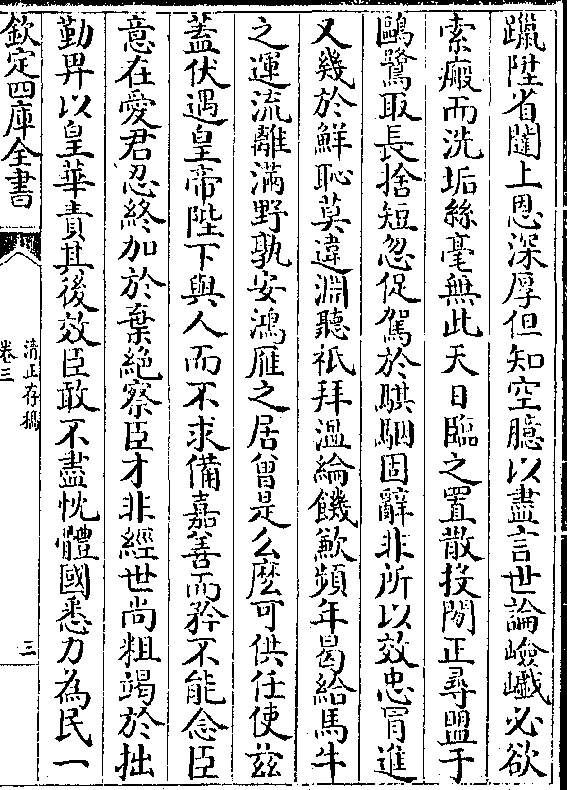 躐陞省闥上恩深厚但知空臆以盡言世論嶮巇必欲
索瘢而洗垢絲毫無此天日臨之置散投閒正尋盟于
鷗鷺取長捨短忽促駕於騏駰固辭非所以效忠冐進
又幾於鮮恥莫違淵聽祇拜溫綸饑歉頻年曷給馬牛
之運流離滿野孰安鴻雁之居曾是么麽可供任使兹
蓋伏遇皇帝陛下與人而不求備嘉善而矜不能念臣
意在愛君忍終加於棄絶察臣才非經世尚粗竭於拙
勤畀以皇華責其後效臣敢不盡忱體國悉力為民一
欽定四庫全書
清正存稿
卷三
三